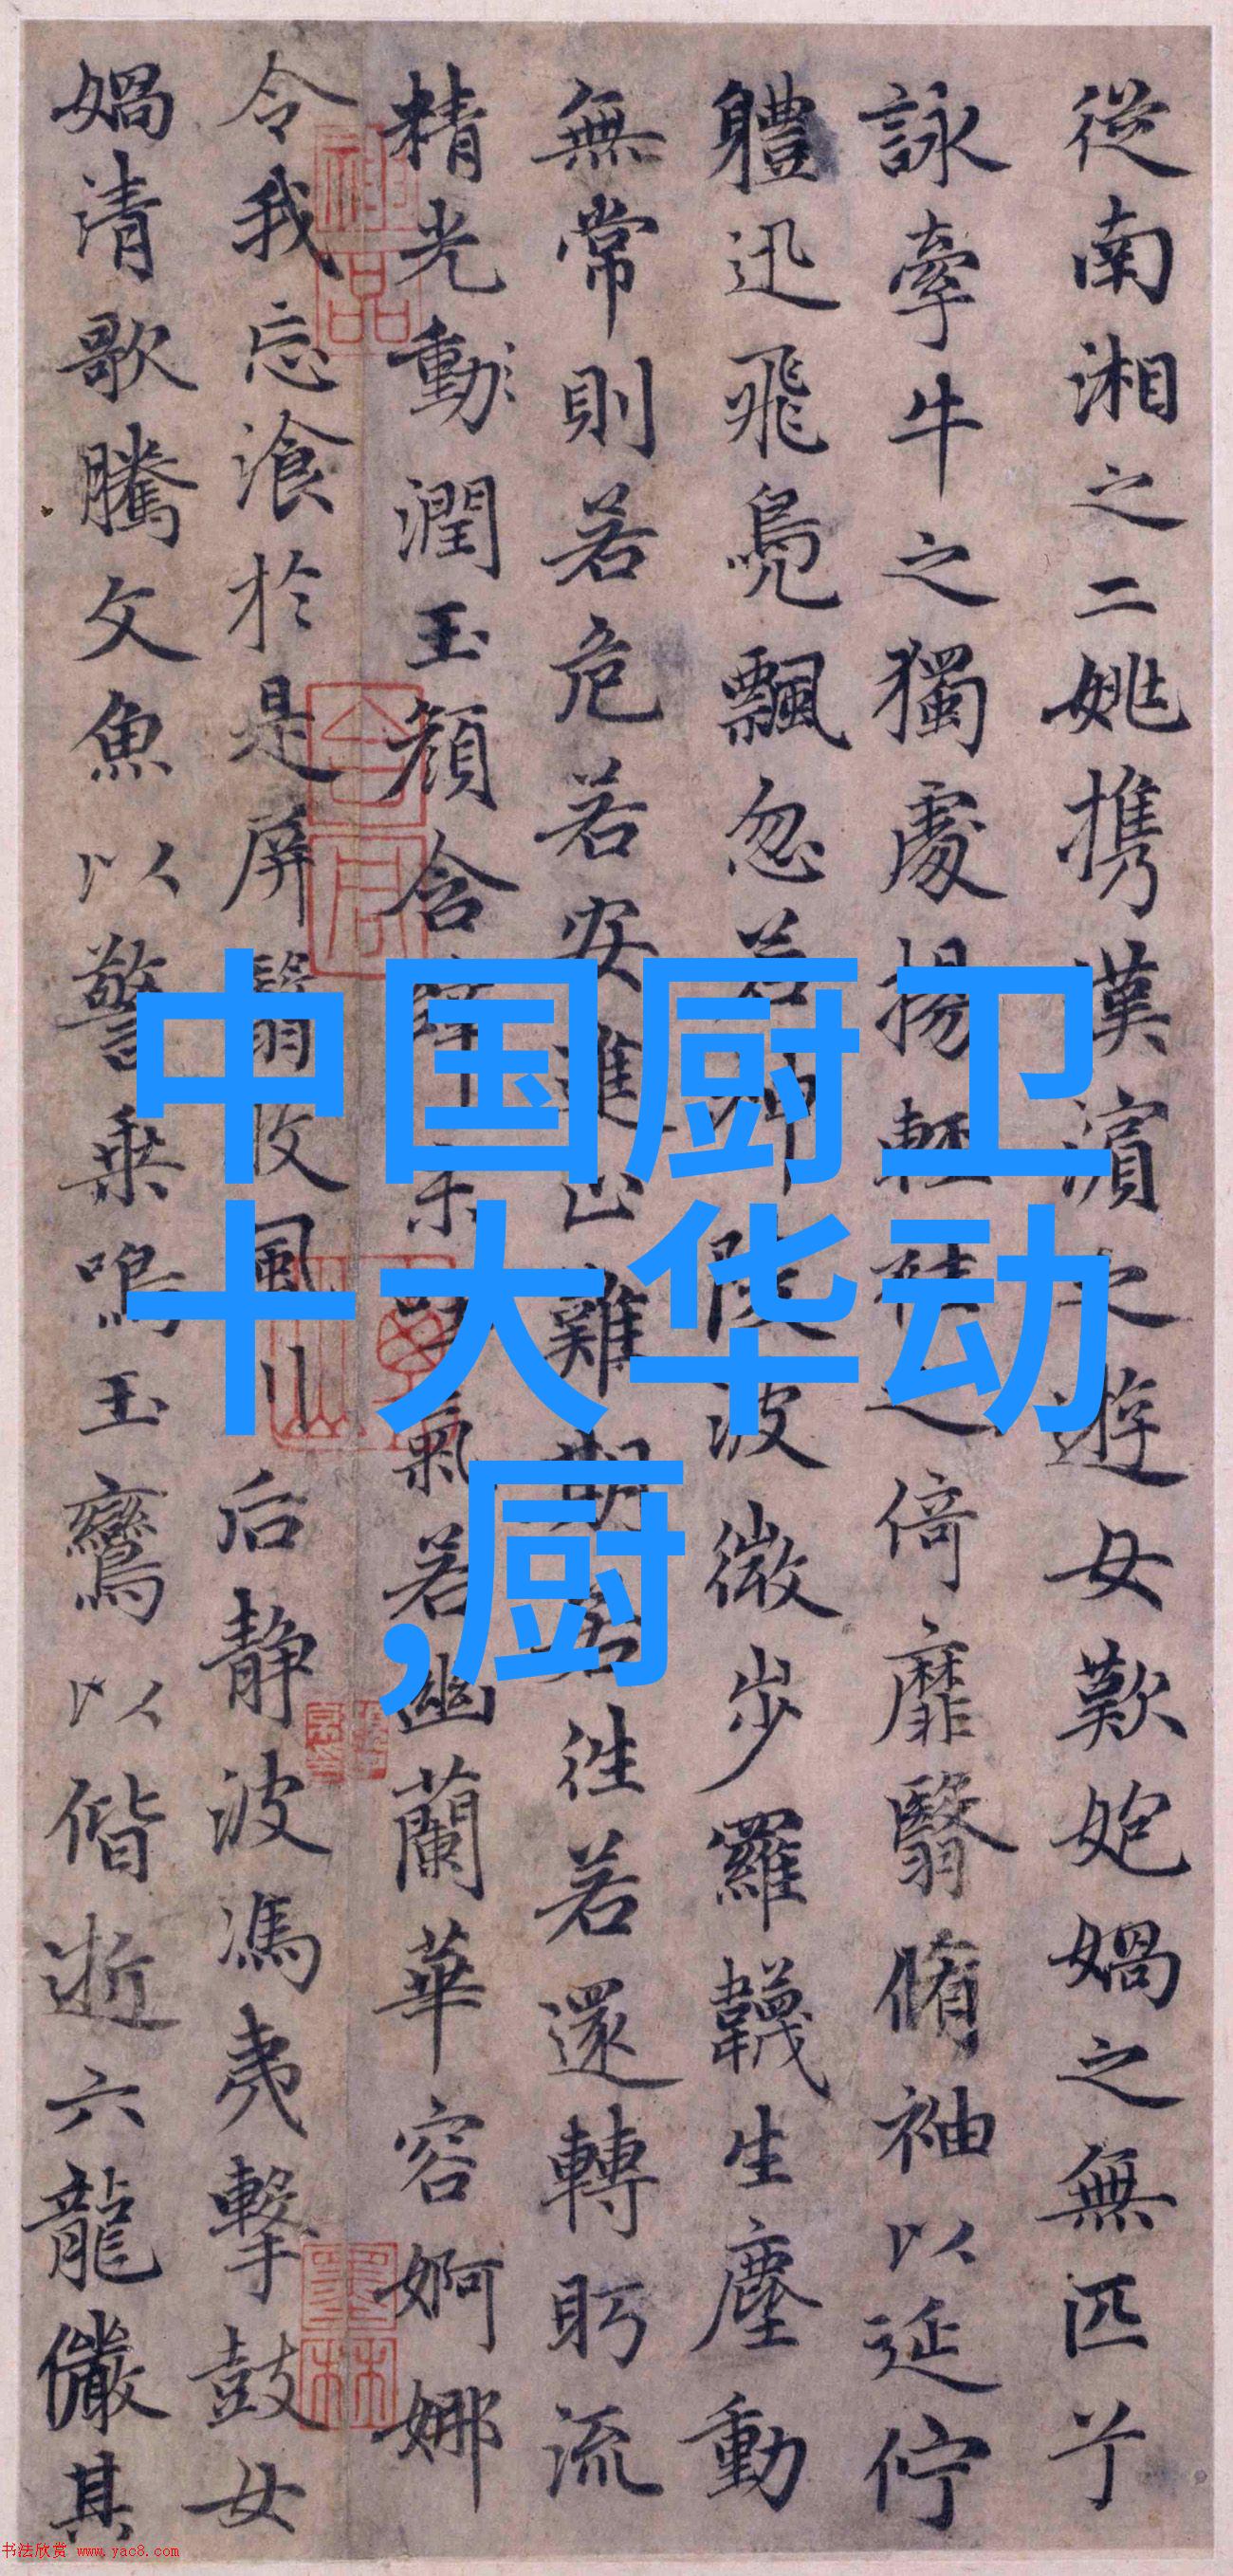 從南湘之二姚攜漢濱之遊女歎匏媧之無匹兮
詠牽牛之獨處揚輕袿之倚靡翳脩袖以延佇
軆迅飛鳧飄忽若神陵波微步羅韈生塵動
無常則若危若安進止難期若往若還轉眄流
精光動潤玉顏含辭未吐氣若幽蘭華容婀娜
令我忘飡於是屏翳收風川后静波馮夷擊鼓女
媧清歌騰文魚以警乗鳴玉鸞以偕逝六龍儼其
中国厨卫
十大华动
,厨
书法欣赏 www.yac8.com